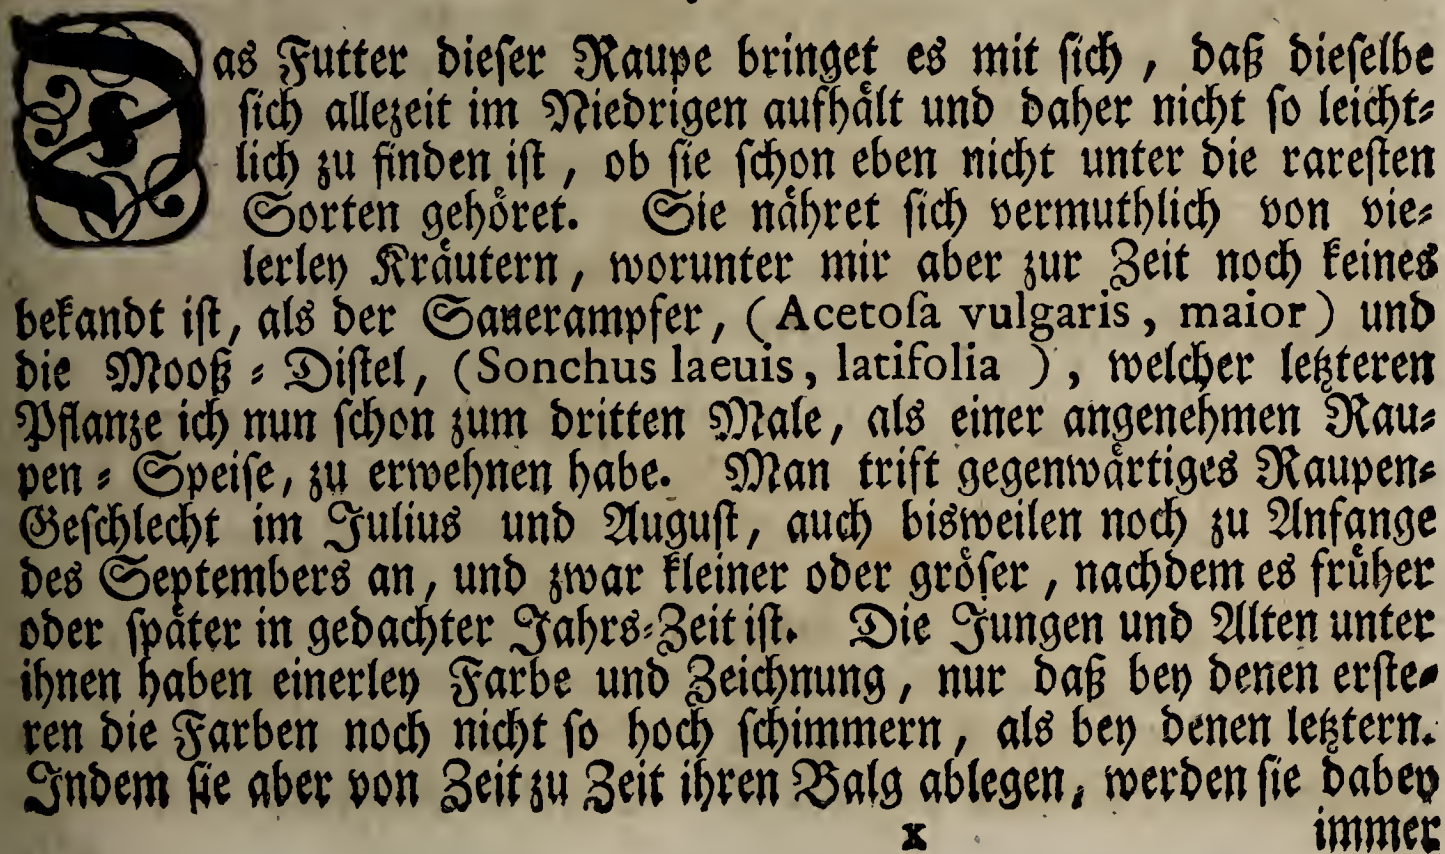 Das Futter dieser Raupe bringet es mit sich, daß dieselbe
sich allezeit im Niedrigen aufhält und daher nicht so leicht-
lich zu finden ist, ob sie schon eben nicht unter die raresten
Sorten gehöret. Sie nähret sich vermuthlich von vie-
lerley Kräutern, worunter mir aber zur Zeit noch keines
bekandt ist, als der Sauerampfer, (Acetosa vulgaris, maior) und
die Mooß-Distel, (Sonchus laeuis, latifolia), welcher letzteren
Pflanze ich nun schon zum dritten Male, als einer angenehmen Rau-
pen-Speise, zu erwehnen habe. Man trift gegenwärtiges Raupen-
Geschlecht im Julius und August, auch bisweilen noch zu Anfange
des Septembers an, und zwar kleiner oder gröser, nachdem es früher
oder später in gedachter Jahrs-Zeit ist. Die Jungen und Alten unter
ihnen haben einerley Farbe und Zeichnung, nur daß bey denen erste-
ren die Farben noch nicht so hoch schimmern, als bey denen letztern.
Indem sie aber von Zeit zu Zeit ihren Balg ablegen, werden sie dabey
x immer